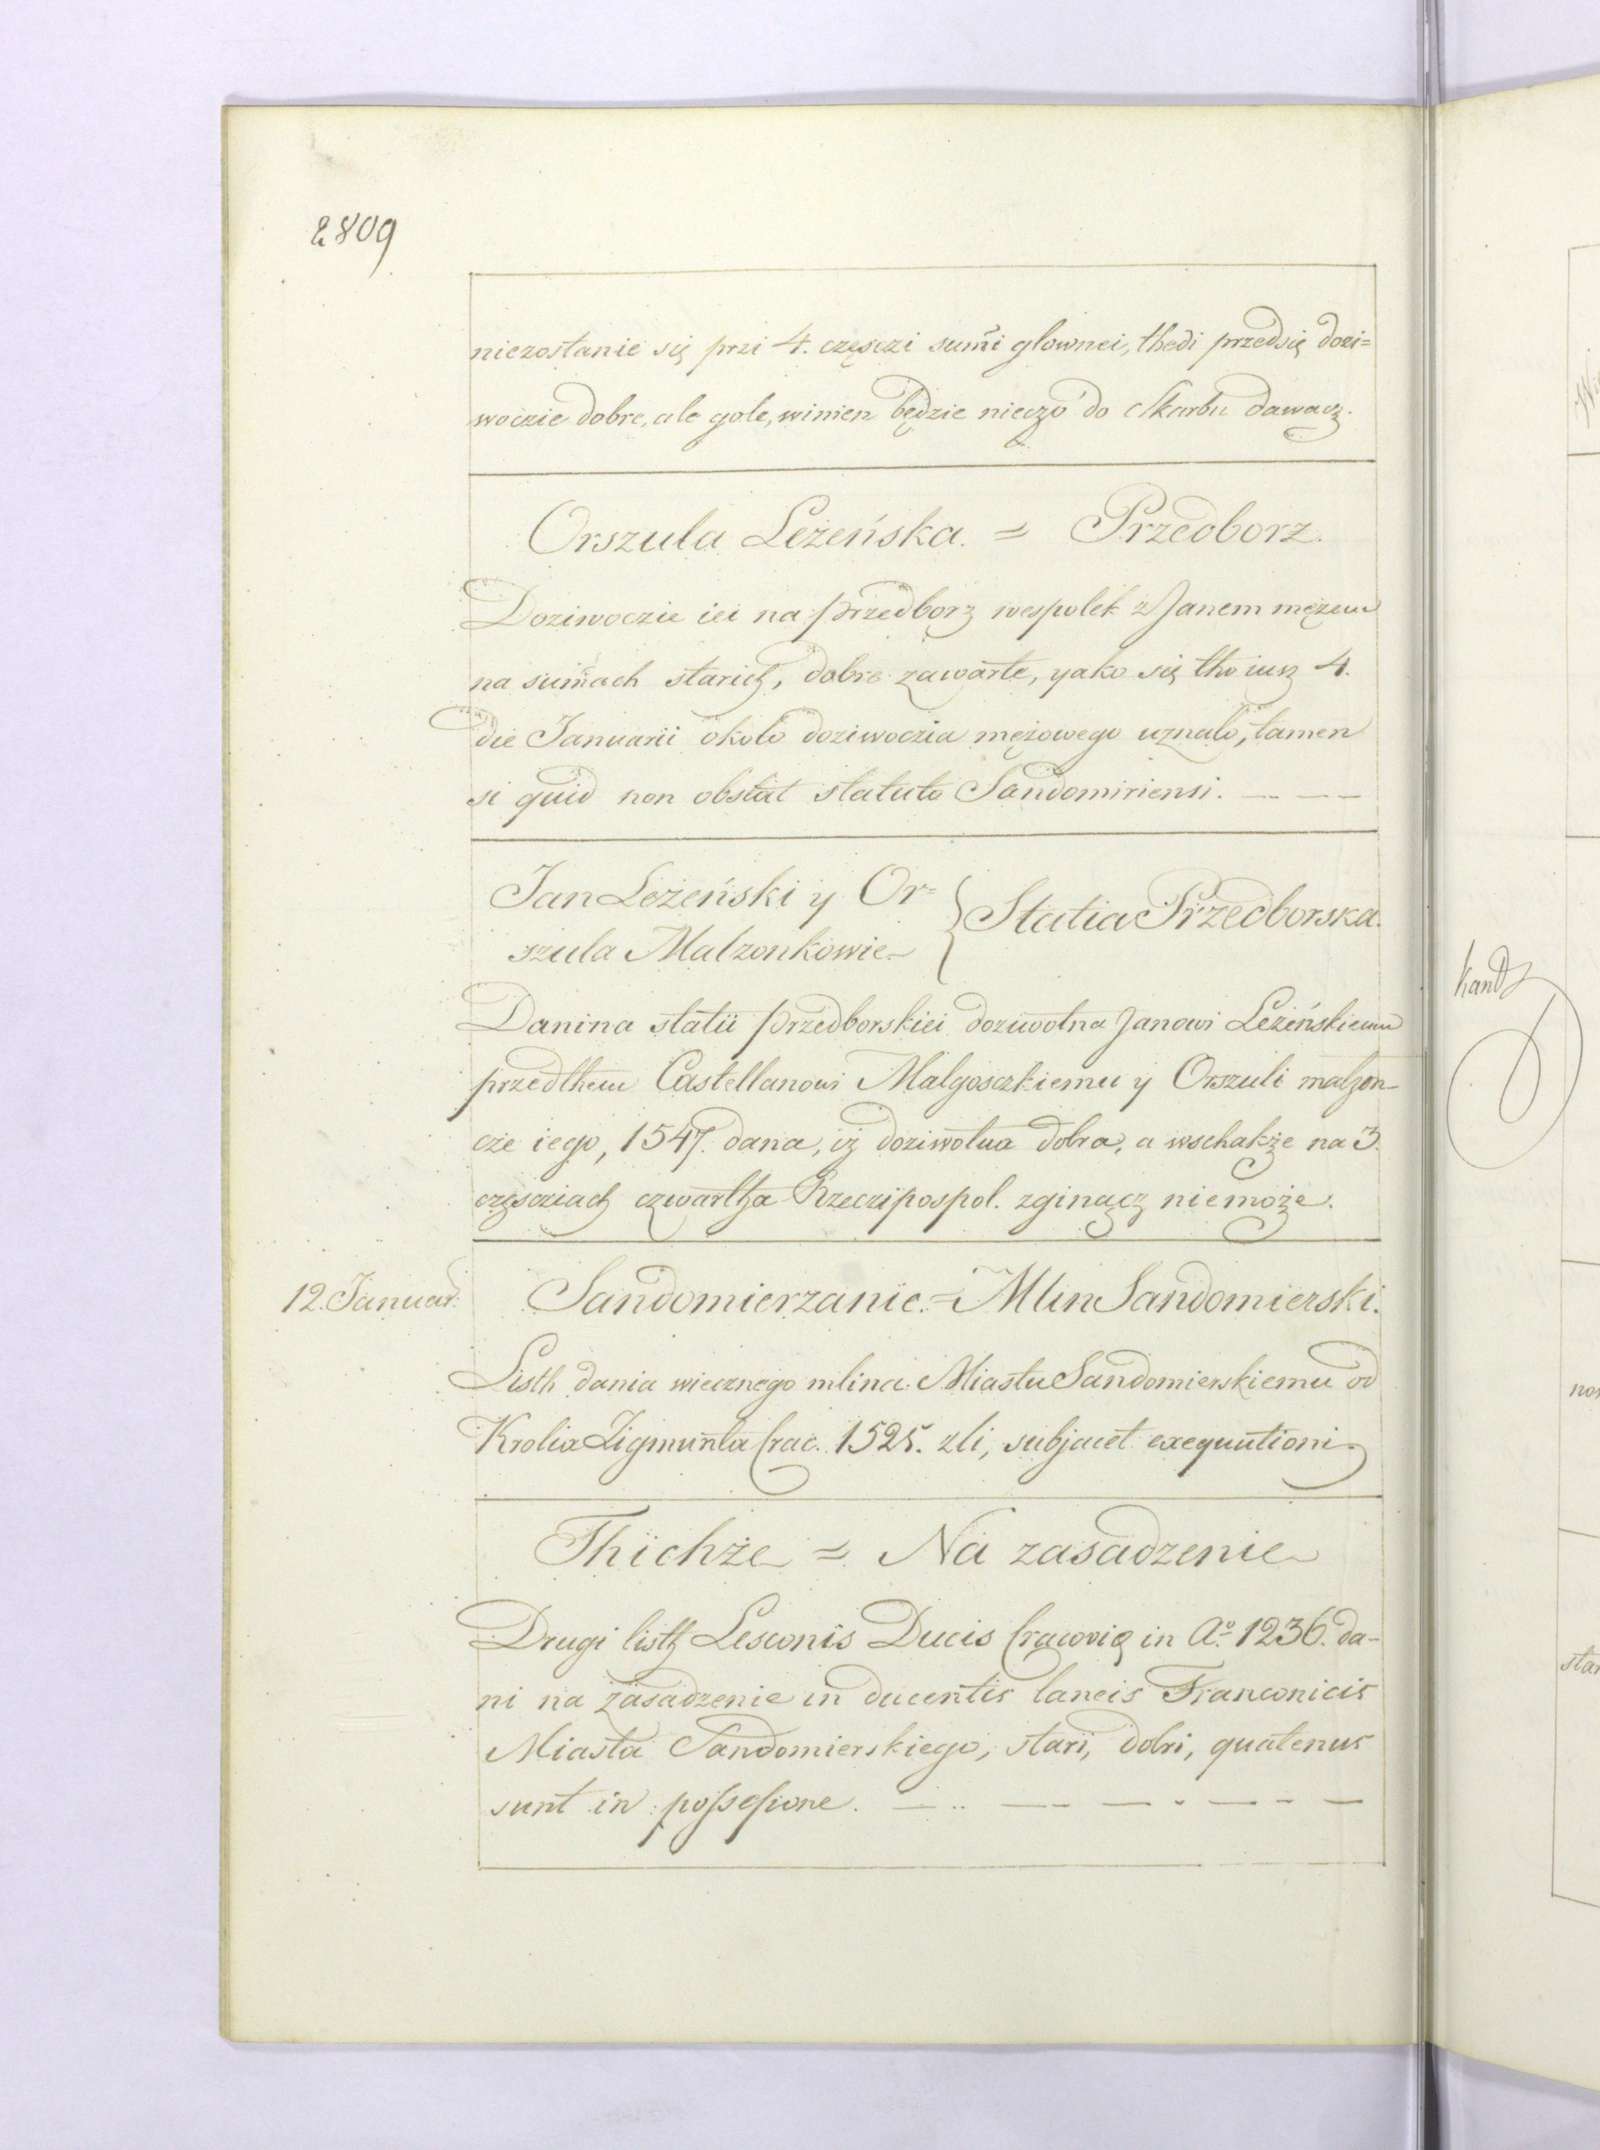 2809
niezostanie się przi 4. częsczi sum̃i glownei, thedi przedsię dozi=
woczie dobre, ale gole, winien będzie nieczo do Skarbu dawacz.
Orszula Leżeńska. = Przedborz.
Doziwoczie iei na przedborz wespolek z Janem mężem
na sum̃ach starich, dobre zawarte, yako się tho iusz 4.
die Januarii okolo doziwoczia mężowego uznalo, tamen
si quid non obstat statuto Sandomiriensi.
Jan Leżeński y Or=
szula Malzonkowie } Statia Przedborska.
Danina statii przedborskiei doziwotna Janowi Leżeńskiemu
przedthem Castellanowi Malgosczkiemu y Orszuli malzon-
cze iego, 1547. dana, iż doziwotna dobra, a wschakże na 3.
częsciach czwartha Rzeczipospol. zginącz niemoże.
12. Januar: Sandomierzanie. = Mlin Sandomierski.
Listh dania wiecznego mlina Miastu Sandomierskiemu od
Krolia Zigmunta Crac. 1525. zli, subjacet exequutioni.
Thichże = Na zasadzenie
Drugi listh Lesconis Ducis Cracovię in Aº 1236. da-
ni na zasadzenie in ducentis laneis Franconicis
Miasta Sandomierskiego, stari, dobri, quatenus
sunt in possessione.